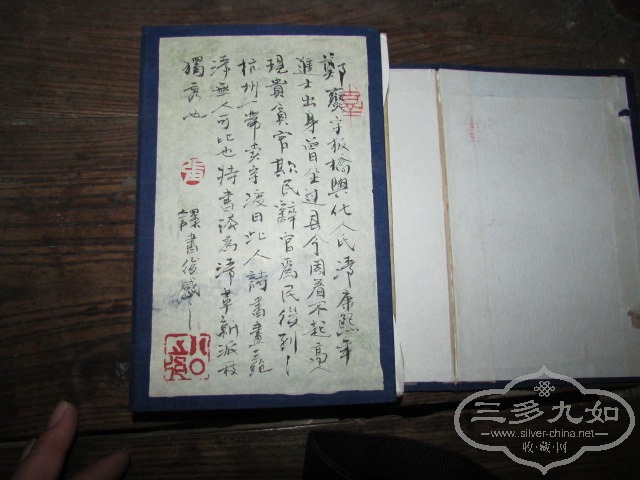 鄭燮字板橋興化人民清康熙年
進士出身曾坐过县令因看不起高人
現貴貪官欺民辭官爲民後到
杭州一帶卖字渡日此人詩書畫三絶
清無人可比也時書法為清革新派
獨家也
譯書後感
三多九如
www.silver-china.net
收·藏·网